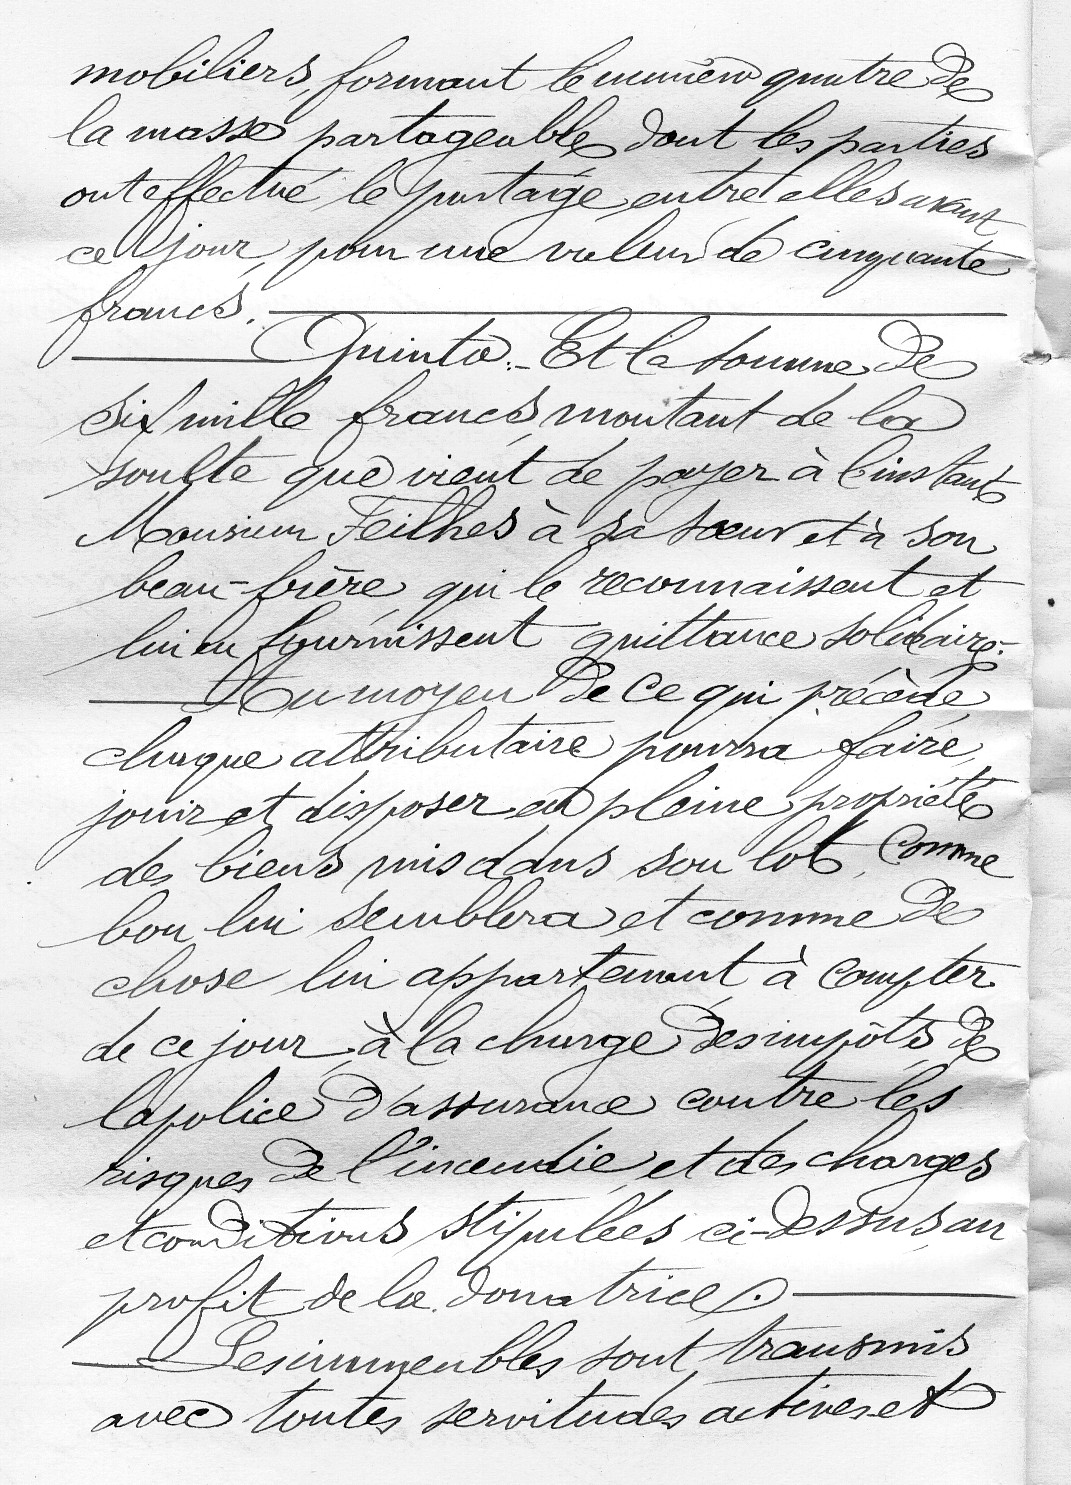 mobiliers, formant le numéro quatre de
la masse partageable dont les parties
ont effectué le partage entre elles avant
ce jour, pour une valeur de cinquante
francs.
Quinto.- Et la somme de
six mille francs, montant de la
soulte que vient de payer à l'instant
Monsieur Feilhes à sa sœur et à son
beau-frère qui le reconnaissent et
lui en fournissent quittance solidaire.-
Au moyen de ce qui précède
chaque attributaire pourra faire,
jouir et disposer en pleine propriété
des biens mis dans son lot, comme
bon lui semblera et comme de
chose lui appartenant à compter
de ce jour, à la charge des impôts, de
la police d'assurance contre les
risques de l'incendie, et des charges
et conditions stipulées ci-dessus, au
profit de la donatrice.
Les immeubles sont transmis
avec toutes servitudes actives et